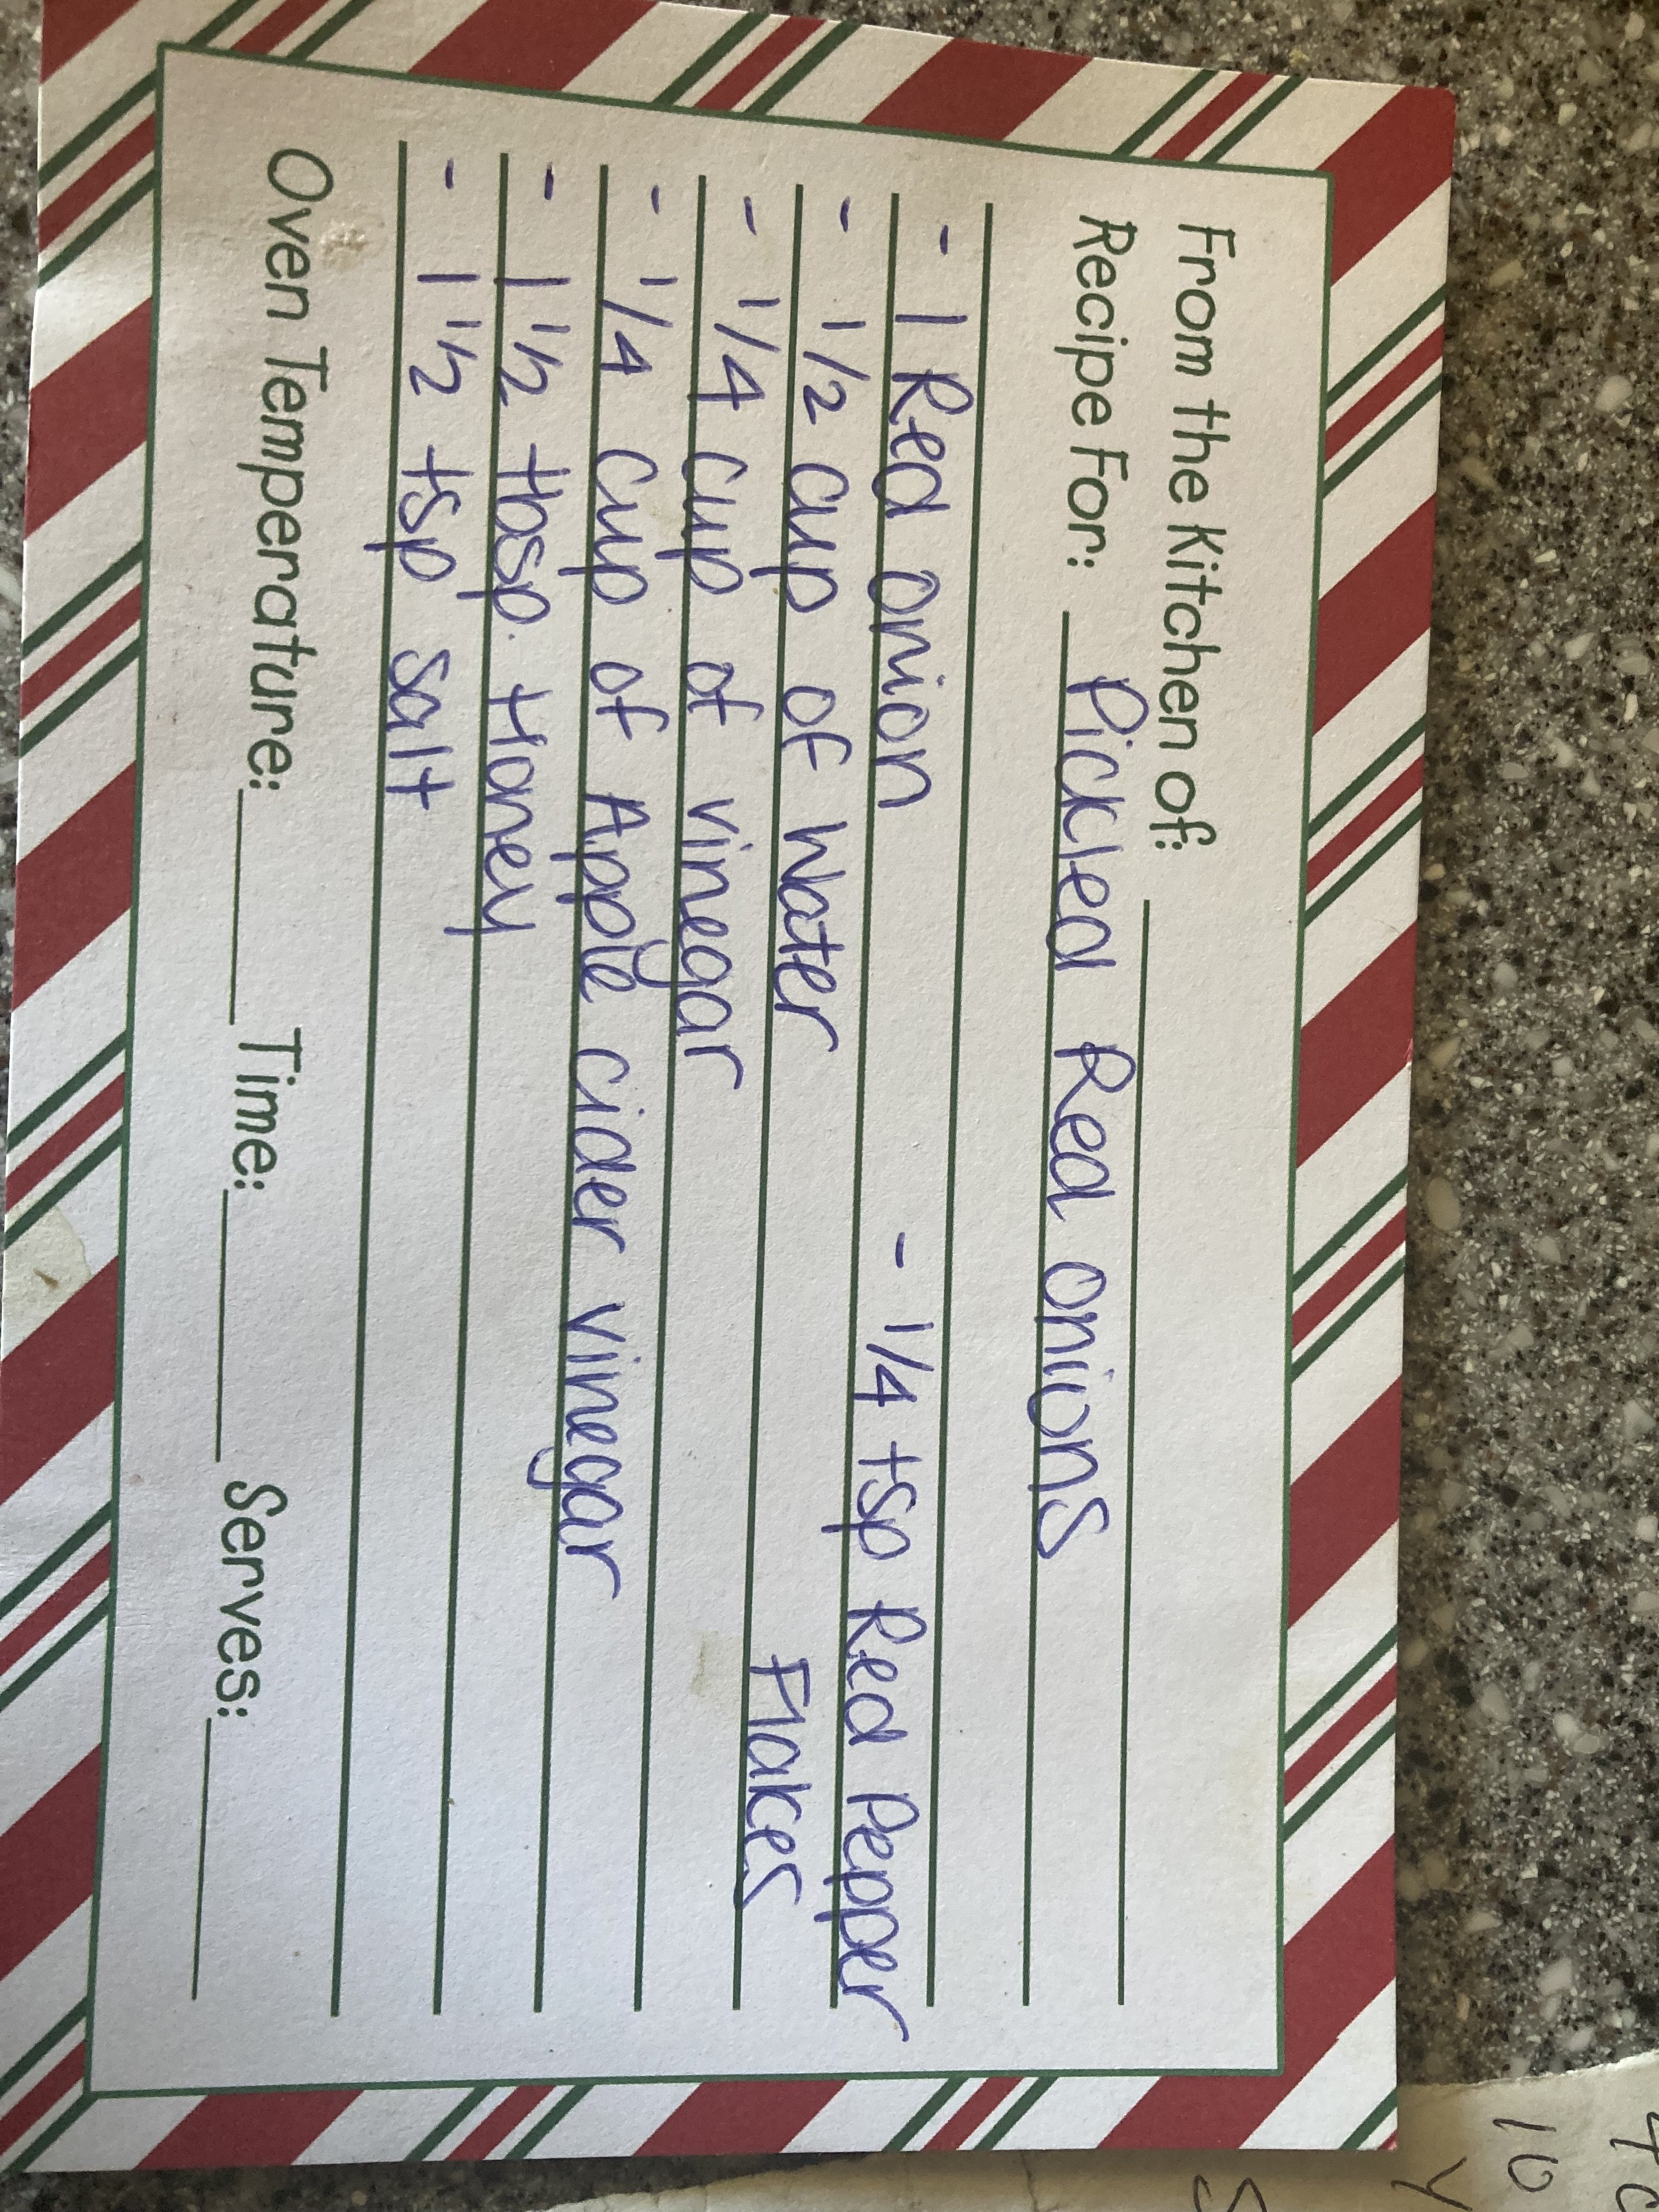 From the Kitchen of:
Recipe For: Pickled Red onions
- 1 Red onion - 1/4 tsp Red Pepper
Flakes
- 1/2 cup of Water
- 1/4 cup of vinegar
- 1/4 cup of Apple cider vinegar
- 1 1/2 tbsp. Honey
- 1 1/2 tsp salt
Oven Temperature: Time: Serves:
10